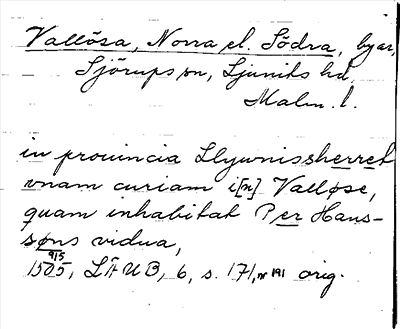 Vallösa, Norra el. Södra, byar,
Sjörups sn, Ljunits hd,
Malm. l.
in prouincia Llywnissherret
vnam curiam i[n] Valløse,
quam inhabitat Per Hans-
søns vidua,
9/5
1505, LÄUB, 6, s. 171, nr 191 orig.